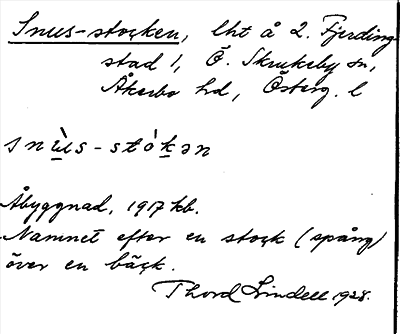 Snus-stocken, lht å 2. Fjerding
stad 1, Ö. Skrukeby sn,
Åkerbo hd, Österg. l
snu̠̇s-stȯk̠ən
Åbyggnad, 1917 kb.
Namnet efter en stock (spång)
över en bäck.
Thord Lindell 1928.